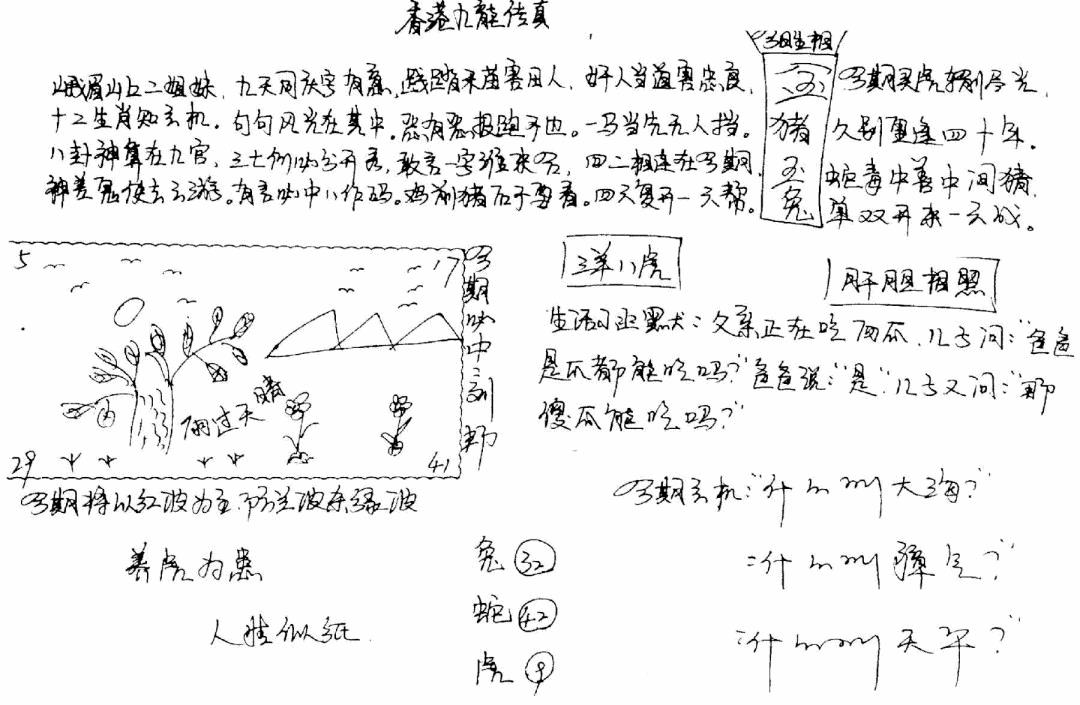 香港九龍传真
峨眉山上二姐妹,九天同庆字有意,践踏禾苗害田人,奸人当道害忠良,
十二生肖知玄机。句句风光在其中。恶有恶报跑不也。一马当先无人挡。
八卦神算在九宫,三七例必分开看,敢言一字谁来,四二相连在期,
神差鬼使去云游。有言必中八作码。鸡前猪后于要看。四天复开一天帮。
生相
猪
玉兔
期买虎输尽光,
久别重逢四十年。
蛇毒中兽中间猪,
单双开来一云战。
5
17
雨过天晴
29
41
期必中
三羊八虎
肝胆相照
生活习政黑犬:父亲正在吃西瓜,儿子问:"爸爸
是瓜都能吃吗?"爸爸说:"是"儿子又问:"那
傻瓜能吃吗?"
期将以红波为主,防兰波杀绿波
期玄机:"什么叫大海?"
:"什么叫 ?"
:"什么叫天平?"
养虎为患
人情似纸
兔 32
蛇 42
虎 9